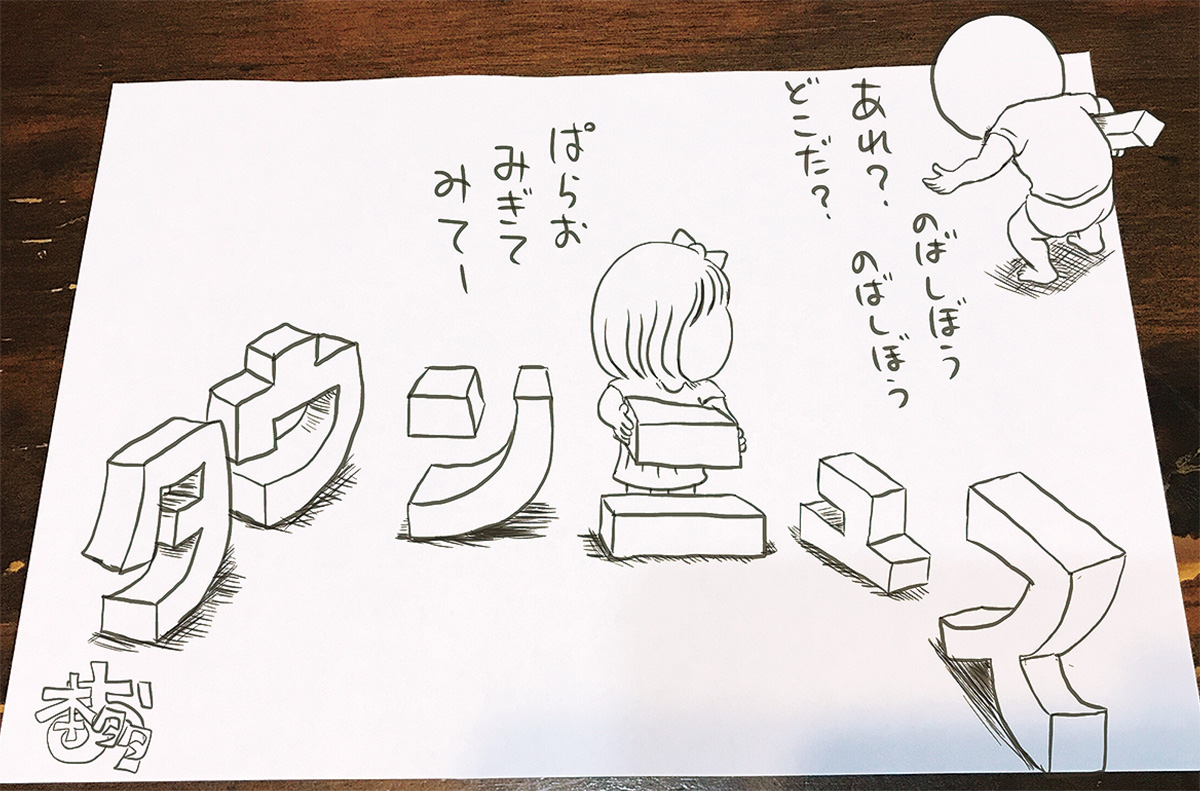 あれ?
どこだ?
のばしぼう
のばしぼう
ぱらお
みぎて
みてー
タウンニュス